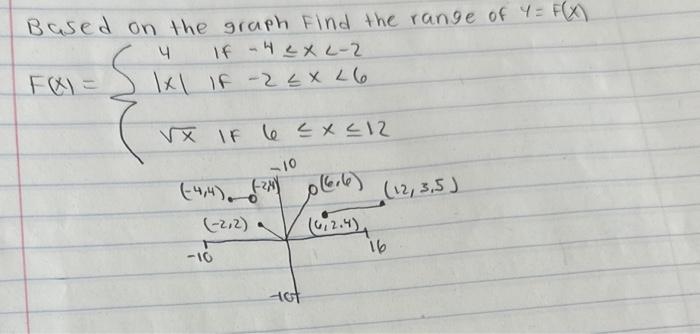 Based on the graph Find the range of Y = F(X)
4 if -4 ≤ x < -2
F(X) = { |x| if -2 ≤ x < 6
√x IF 6 ≤ x ≤ 12
-10
(-4,4) (-2,4) (6,6) (12,3,5)
(-2,2) (6,2.4)
-10 16
-10